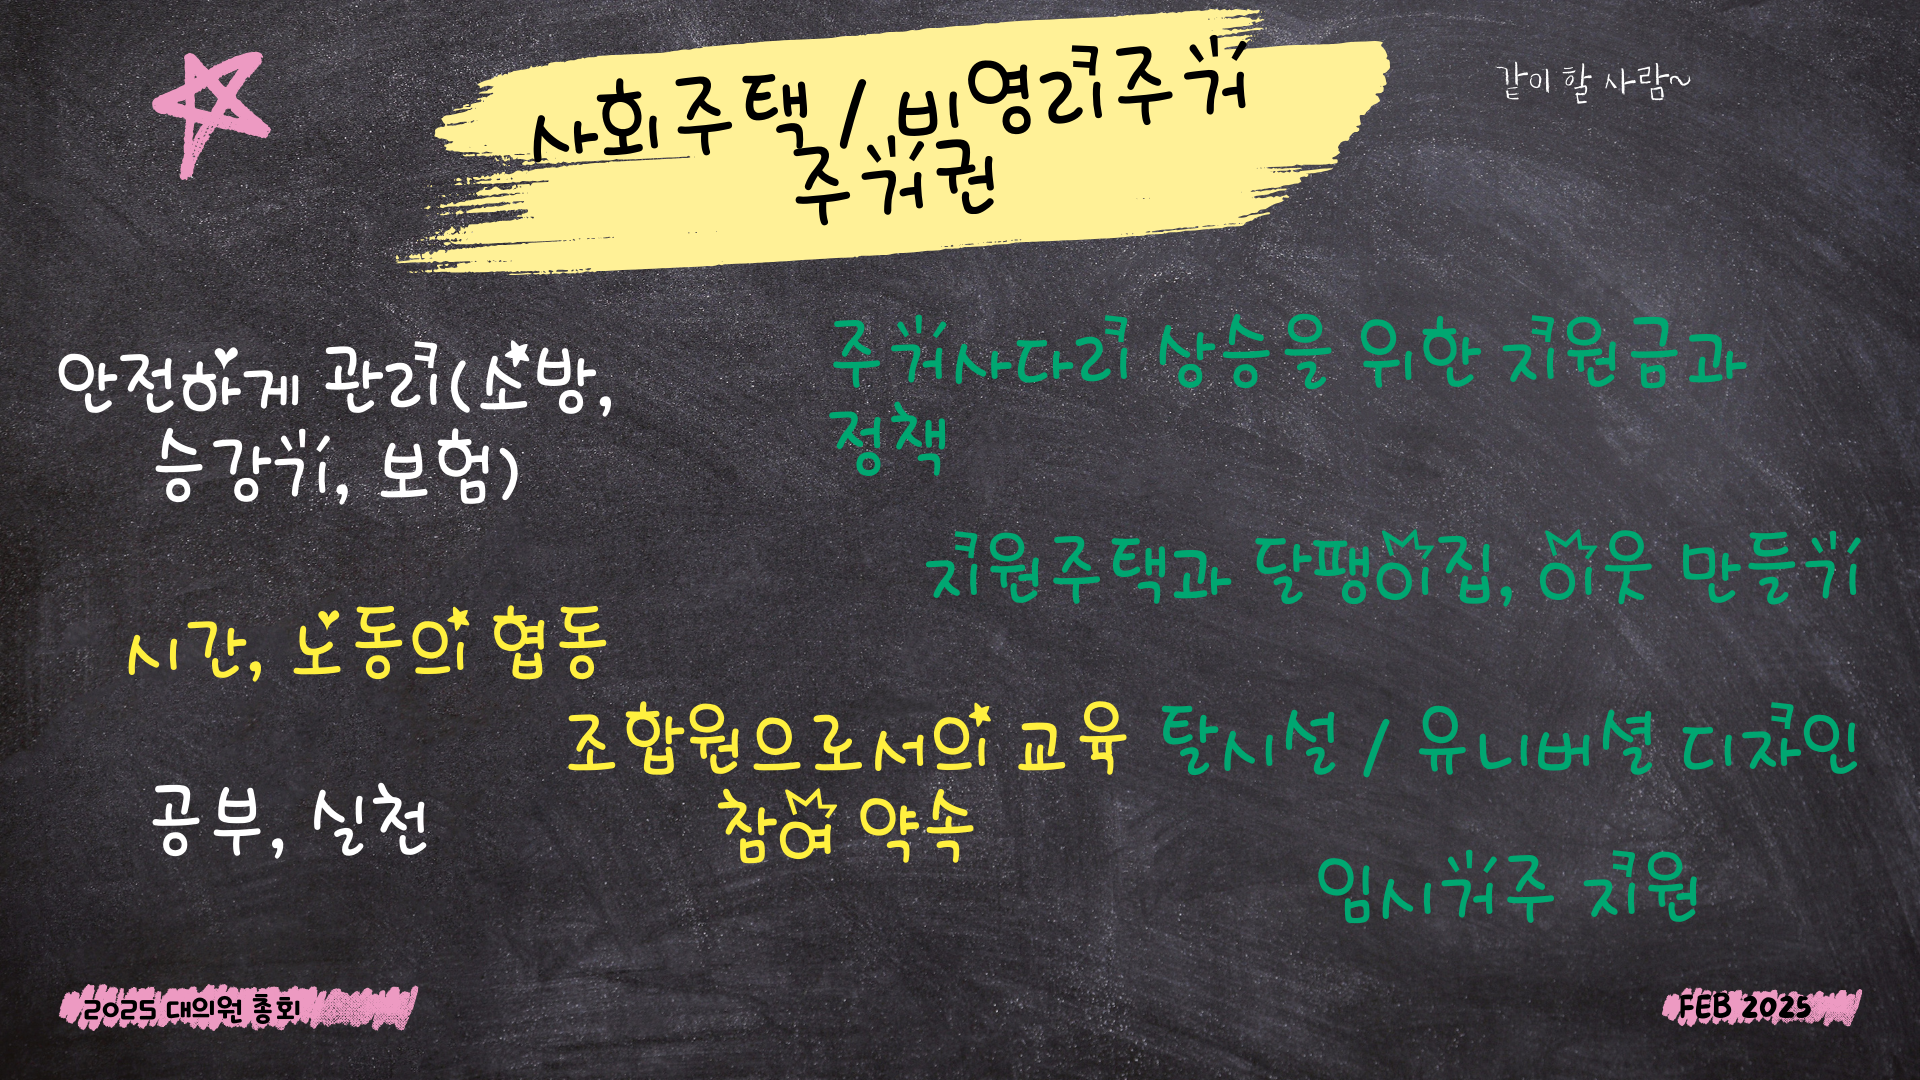 사회주택 / 비영리주거
주거권
같이 할 사람~
안전하게 관리(소방,
승강기, 보험)
주거사다리 상승을 위한 지원금과
정책
지원주택과 달팽이집, 이웃 만들기
시간, 노동의 협동
조합원으로서의 교육
참여 약속
탈시설 / 유니버셜 디자인
공부, 실천
임시거주 지원
2025 대의원 총회
FEB 2025